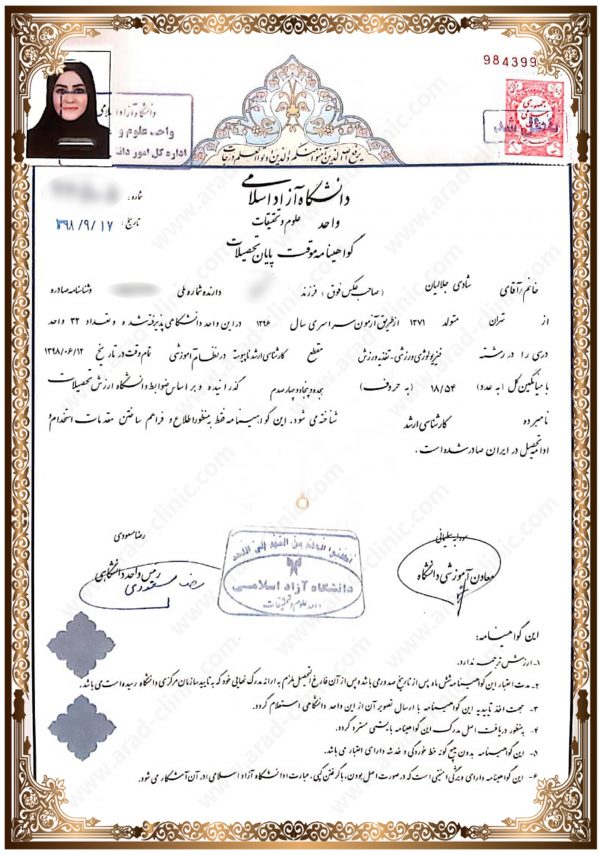 984399
دانشگاه آزاد اسلامی
واحد علوم و
اداره کل امور
جمهوری
باطل شد
یرفع الله الذین آمنوا منکم والذین اوتوا العلم درجات
دانشگاه آزاد اسلامی
واحد علوم و تحقیقات
گواهینامه موقت پایان تحصیلات
شماره:
تاریخ: ۱۳۹۸/۹/۱۷
خانم/آقای شادی جلالیان (صاحب عکس فوق) فرزند دارنده شماره ملی و شناسنامه صادره
از تهران متولد ۱۳۷۱ از طریق آزمون سراسری سال ۱۳۹۶ در این واحد دانشگاهی پذیرفته شده و تعداد ۳۲ واحد
درسی را در رشته فیزیولوژی ورزشی-تغذیه ورزش مقطع کارشناسی ارشد ناپیوسته در نظام آموزشی تمام وقت در تاریخ ۱۳۹۸/۰۶/۱۲
با میانگین کل (به عدد) ۱۸/۵۴ (به حروف) هجده و پنجاه و چهار صدم گذرانیده و بر اساس ضوابط دانشگاه ارزش تحصیلات
نامبرده کارشناسی ارشد شناخته می شود. این گواهینامه فقط به منظور اطلاع و فراهم ساختن مقدمات استخدام/
ادامه تحصیل در ایران صادر شده است.
سودابه سلیمانی
معاون آموزشی دانشگاه
اطلبوا العلم من المهد الی اللحد
دانشگاه آزاد اسلامی
واحد علوم و تحقیقات
رضا مسعودی
رئیس واحد دانشگاهی
این گواهینامه:
۱- ارزش ترجمه ندارد.
۲- مدت اعتبار این گواهینامه شش ماه پس از تاریخ صدور می باشد و پس از آن فارغ التحصیل ملزم به ارائه مدرک نهایی خود که به تایید سازمان مرکزی دانشگاه رسیده است می باشد.
۳- جهت اخذ تاییدیه این گواهینامه با ارسال تصویر آن از این واحد دانشگاهی استعلام گردد.
۴- به منظور دریافت اصل مدرک این گواهینامه بایستی مسترد گردد.
۵- این گواهینامه بدون هیچ گونه خط خوردگی و خدشه دارای اعتبار می باشد.
۶- این گواهینامه دارای ویژگی امنیتی است که در صورت اصل بودن، با گرفتن کپی، عبارت دانشگاه آزاد اسلامی در آن آشکار می شود.
www.arad-clinic.com